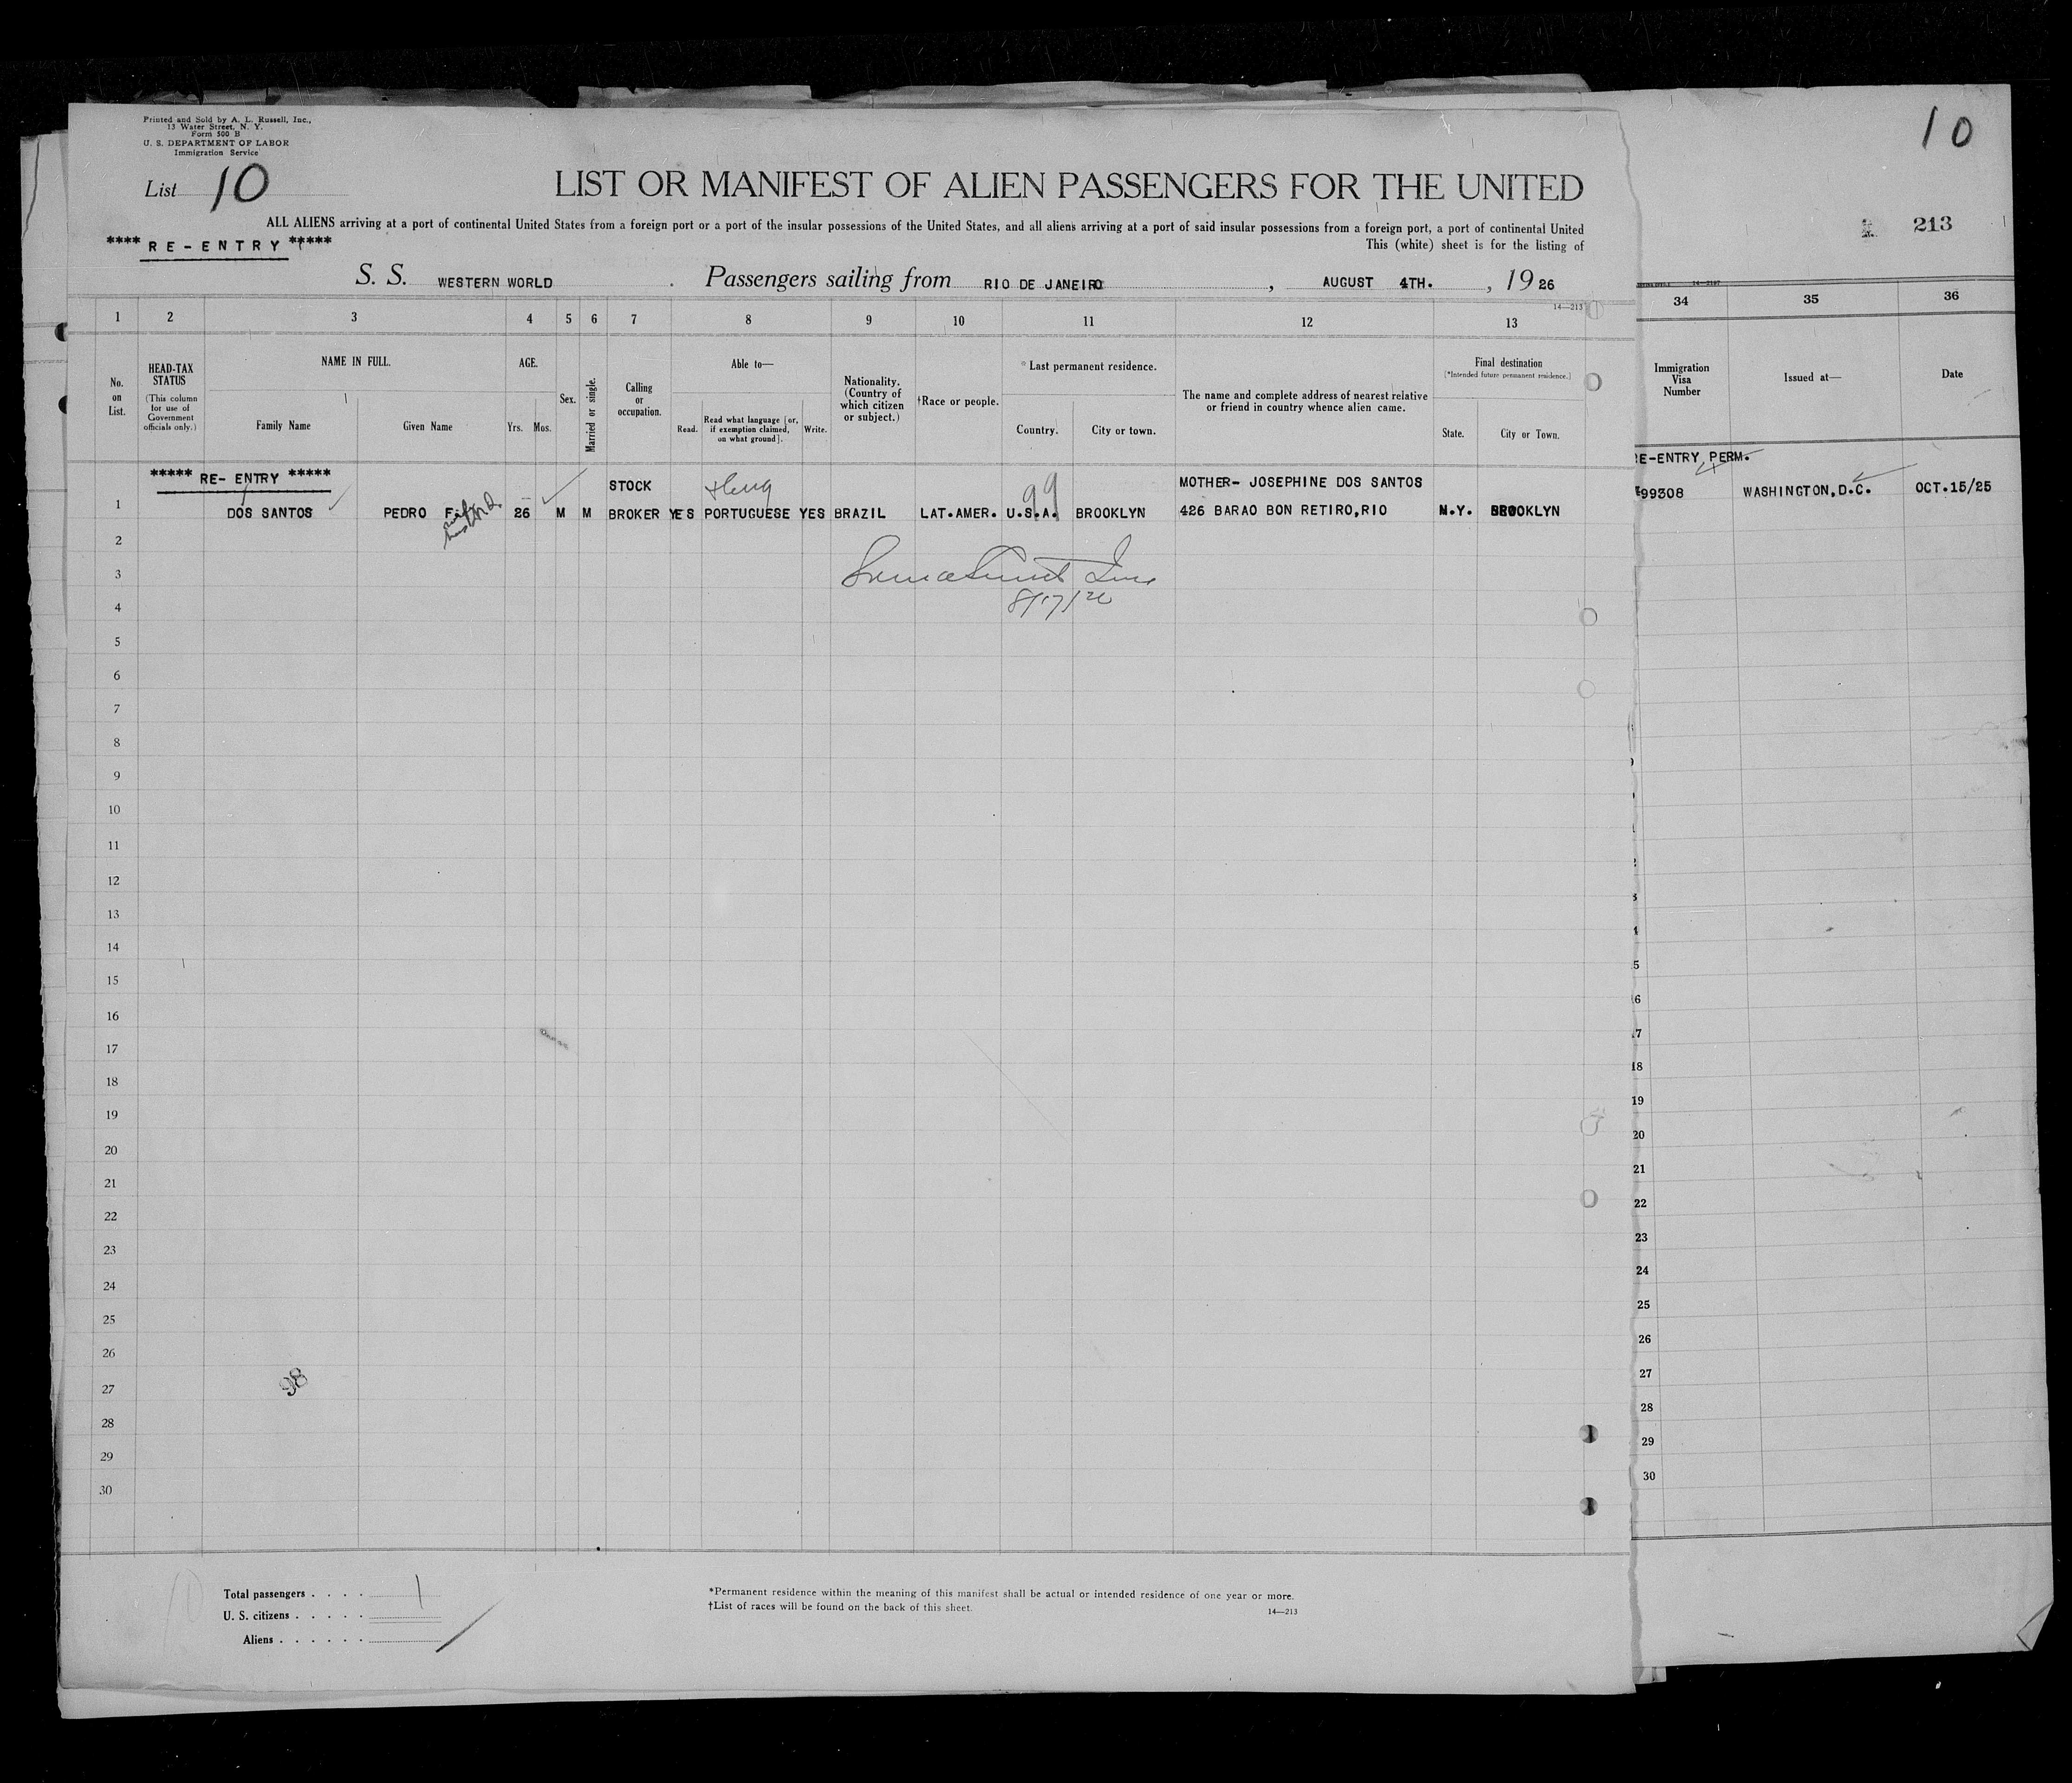 Printed and Sold by A. L. Russell, Inc.,
13 Water Street, N. Y.
Form 500 B
U. S. DEPARTMENT OF LABOR
Immigration Service
List 10
LIST OR MANIFEST OF ALIEN PASSENGERS FOR THE UNITED
ALL ALIENS arriving at a port of continental United States from a foreign port or a port of the insular possessions of the United States, and all aliens arriving at a port of said insular possessions from a foreign port, a port of continental United
This (white) sheet is for the listing of
**** RE-ENTRY *****
S. S. WESTERN WORLD . Passengers sailing from RIO DE JANEIRO , AUGUST 4TH. , 1926
14—213
1 2 3 4 5 6 7 8 9 10 11 12 13
No. on List.
HEAD-TAX STATUS
(This column for use of Government officials only.)
NAME IN FULL.
Family Name
Given Name
AGE.
Yrs. Mos.
Sex.
Married or single.
Calling or occupation.
Able to—
Read.
Read what language [or, if exemption claimed, on what ground].
Write.
Nationality. (Country of which citizen or subject.)
†Race or people.
*Last permanent residence.
Country.
City or town.
The name and complete address of nearest relative or friend in country whence alien came.
Final destination
(*Intended future permanent residence.)
State.
City or Town.
***** RE- ENTRY *****
STOCK
MOTHER- JOSEPHINE DOS SANTOS
99
1 DOS SANTOS PEDRO F. 26 M M BROKER YES PORTUGUESE YES BRAZIL LAT.AMER. U.S.A. BROOKLYN 426 BARAO BON RETIRO,RIO N.Y. BROOKLYN
2
3
8/17/26
4
5
6
7
8
9
10
11
12
13
14
15
16
17
18
19
20
21
22
23
24
25
26
98
27
28
29
30
Total passengers . . . . 1
U. S. citizens . . . . .
Aliens . . . . . .
*Permanent residence within the meaning of this manifest shall be actual or intended residence of one year or more.
†List of races will be found on the back of this sheet.
14—213
10
213
34 35 36
Immigration Visa Number
Issued at—
Date
RE-ENTRY PERM.
99308 WASHINGTON,D.C. OCT.15/25
18
19
20
21
22
23
24
25
26
27
28
29
30